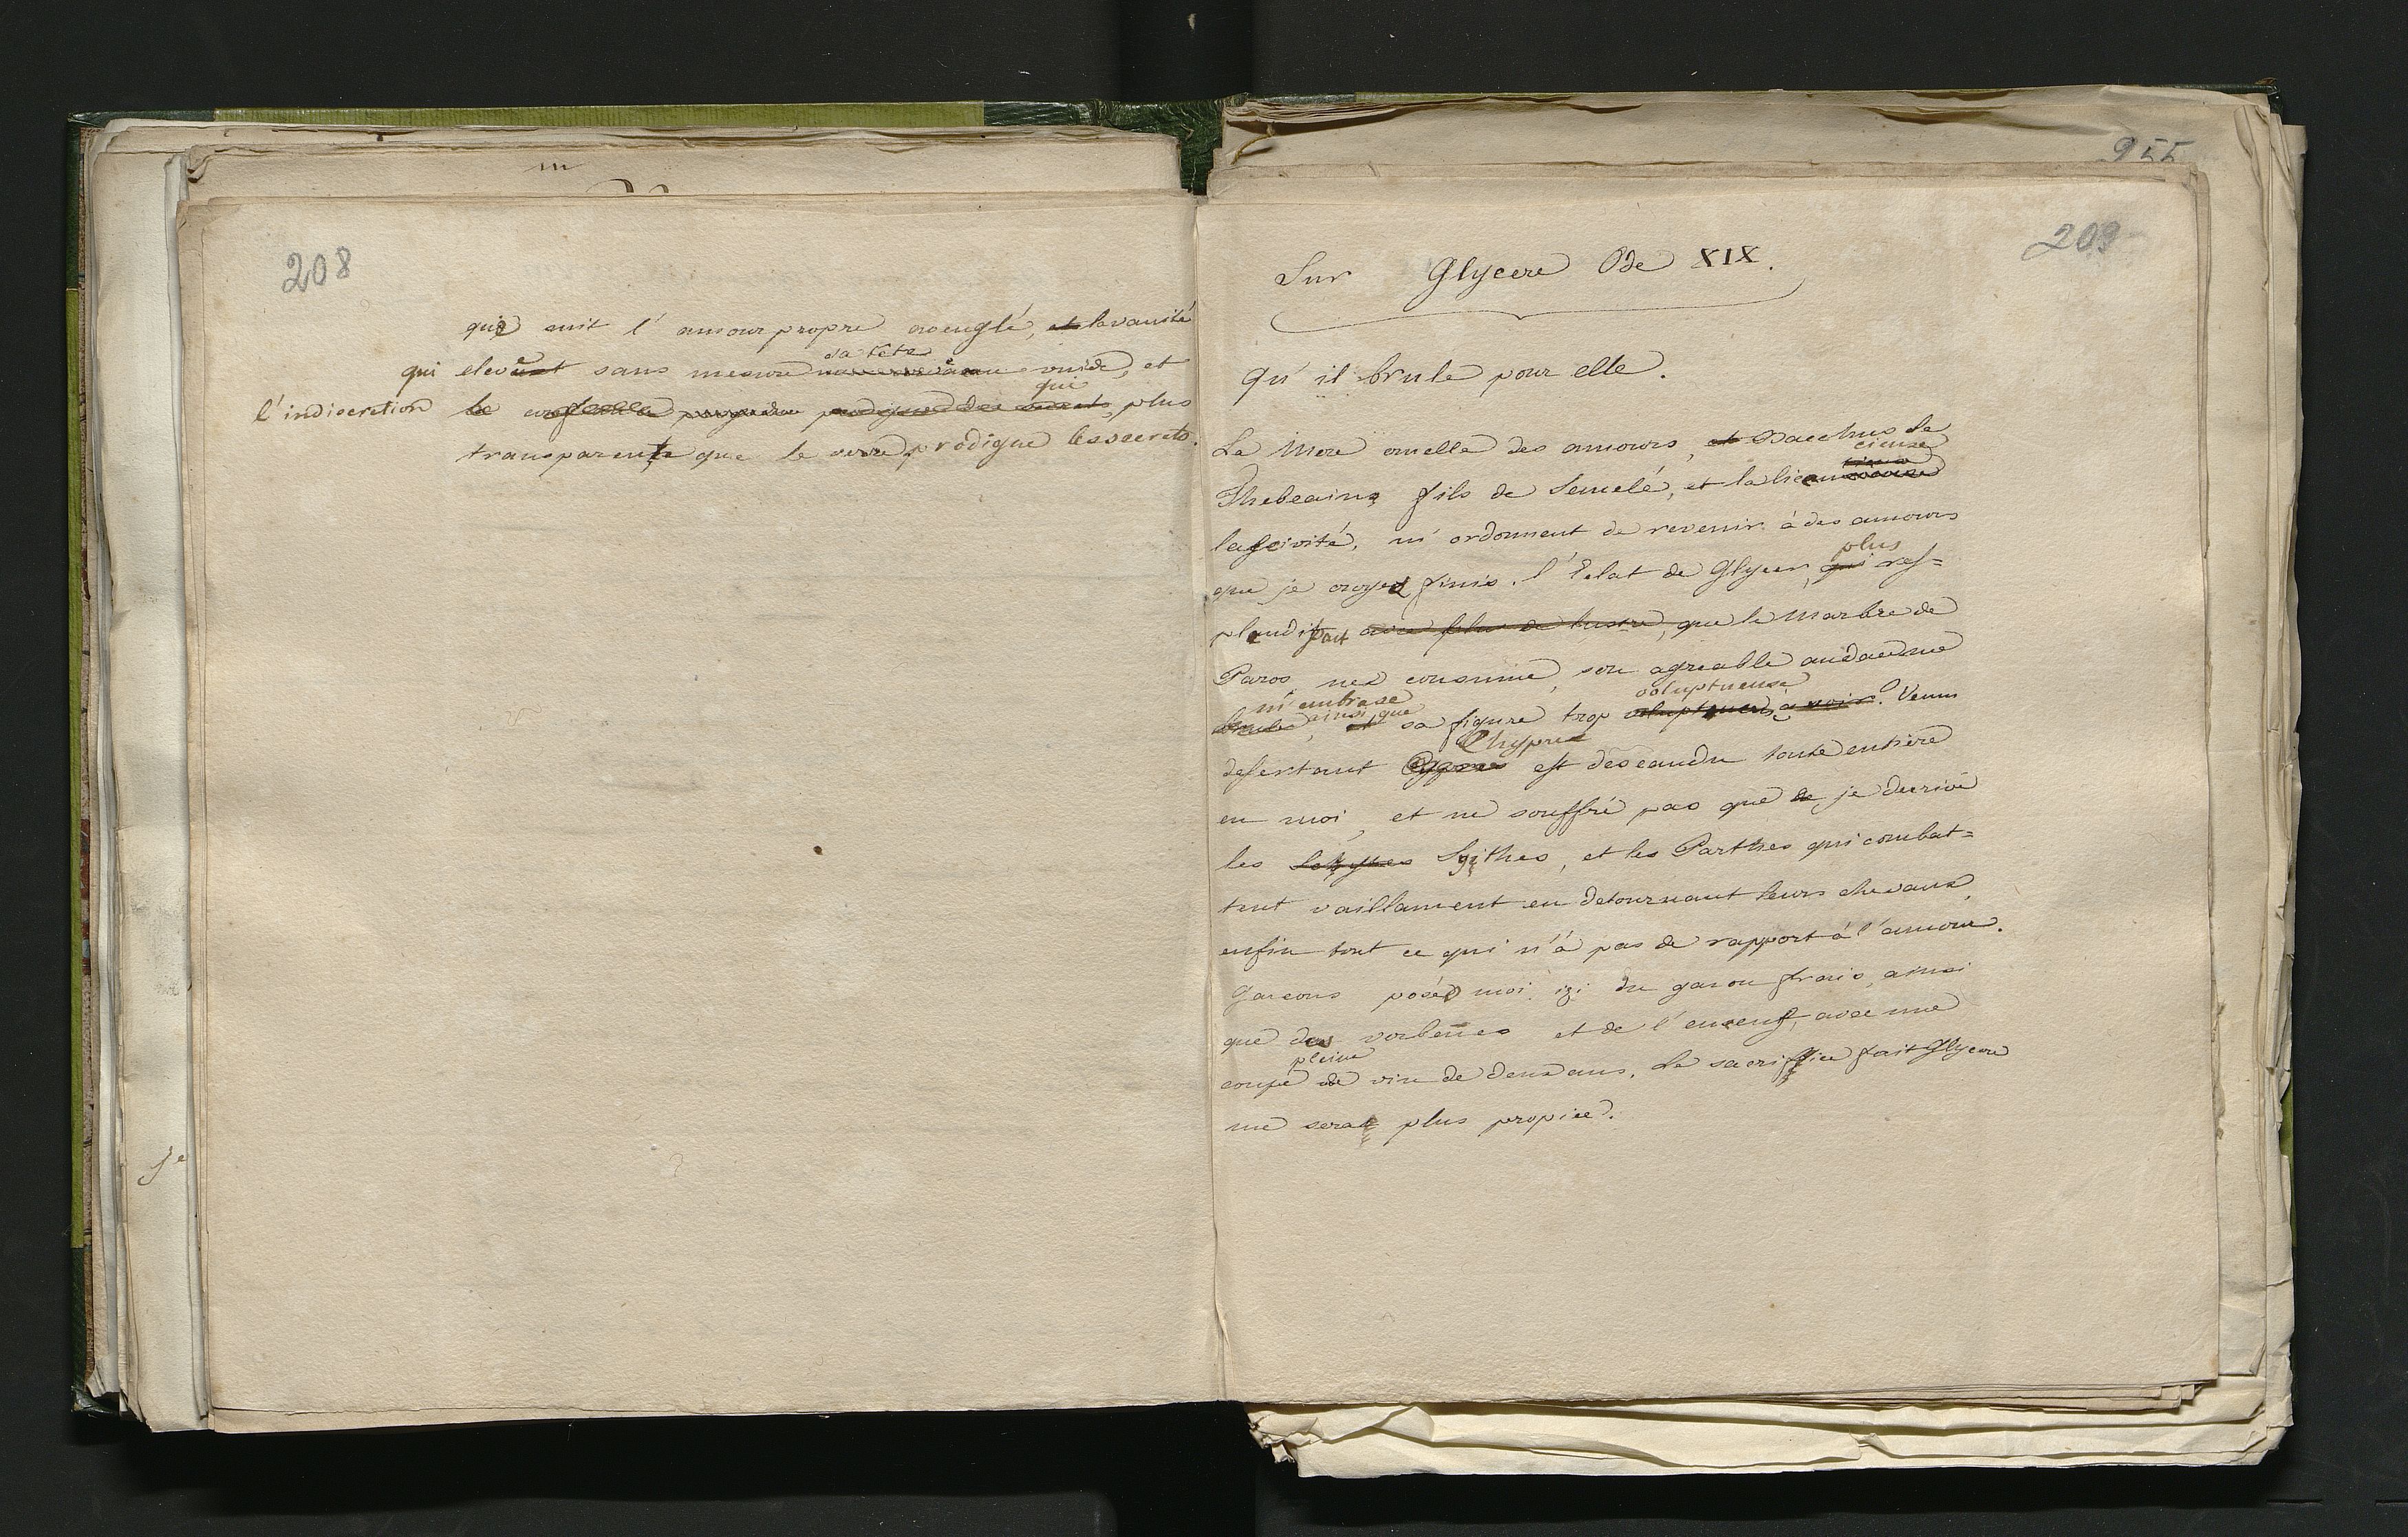 208
que suit l'amour propre aveuglé, et la vanité
sa tete
qui eleve sans mesure vuide, et
qui
l'indiscretion le prodigue des secrets, plus
transparente que le verre prodigue les secrets.
955
209
Sur Glycere Ode XIX.
qu'il brule pour elle.
La Mere cruelle des amours, et Bacchus de
cieuse
Thebeaine fils de Semelé, et la licen
lascivité, m'ordonnent de revenir à des amours
plus
que je croyes finis. l'Eclat de Glycere, qui res=
plendissant avec plus de lustre, que le Marbre de
Paros me consume, son agreable audace me
m'embrase ainsi que voluptueuse
brule, et sa figure trop voluptueuse a voir. Venus
Chypre
desertant est desceandu toute entiere
en moi, et ne souffre pas que de je decrive
les Sythes, et les Parthes qui combat=
tent vaillament en detournant leurs chevaux,
enfin tout ce qui n'a pas de rapport à l'amour.
Garcons posed moi, izi du gason frais, ainsi
que des verbenes et de l'encens, avec une
pleine
coupe de vin de deux ans. Le sacrifice fait Glycere
me sera plus propice.
Je